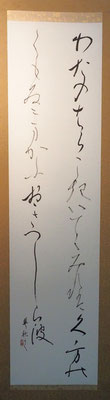 わたのはらこき出てみれは久方能
くもゐにまかふおきつしら波